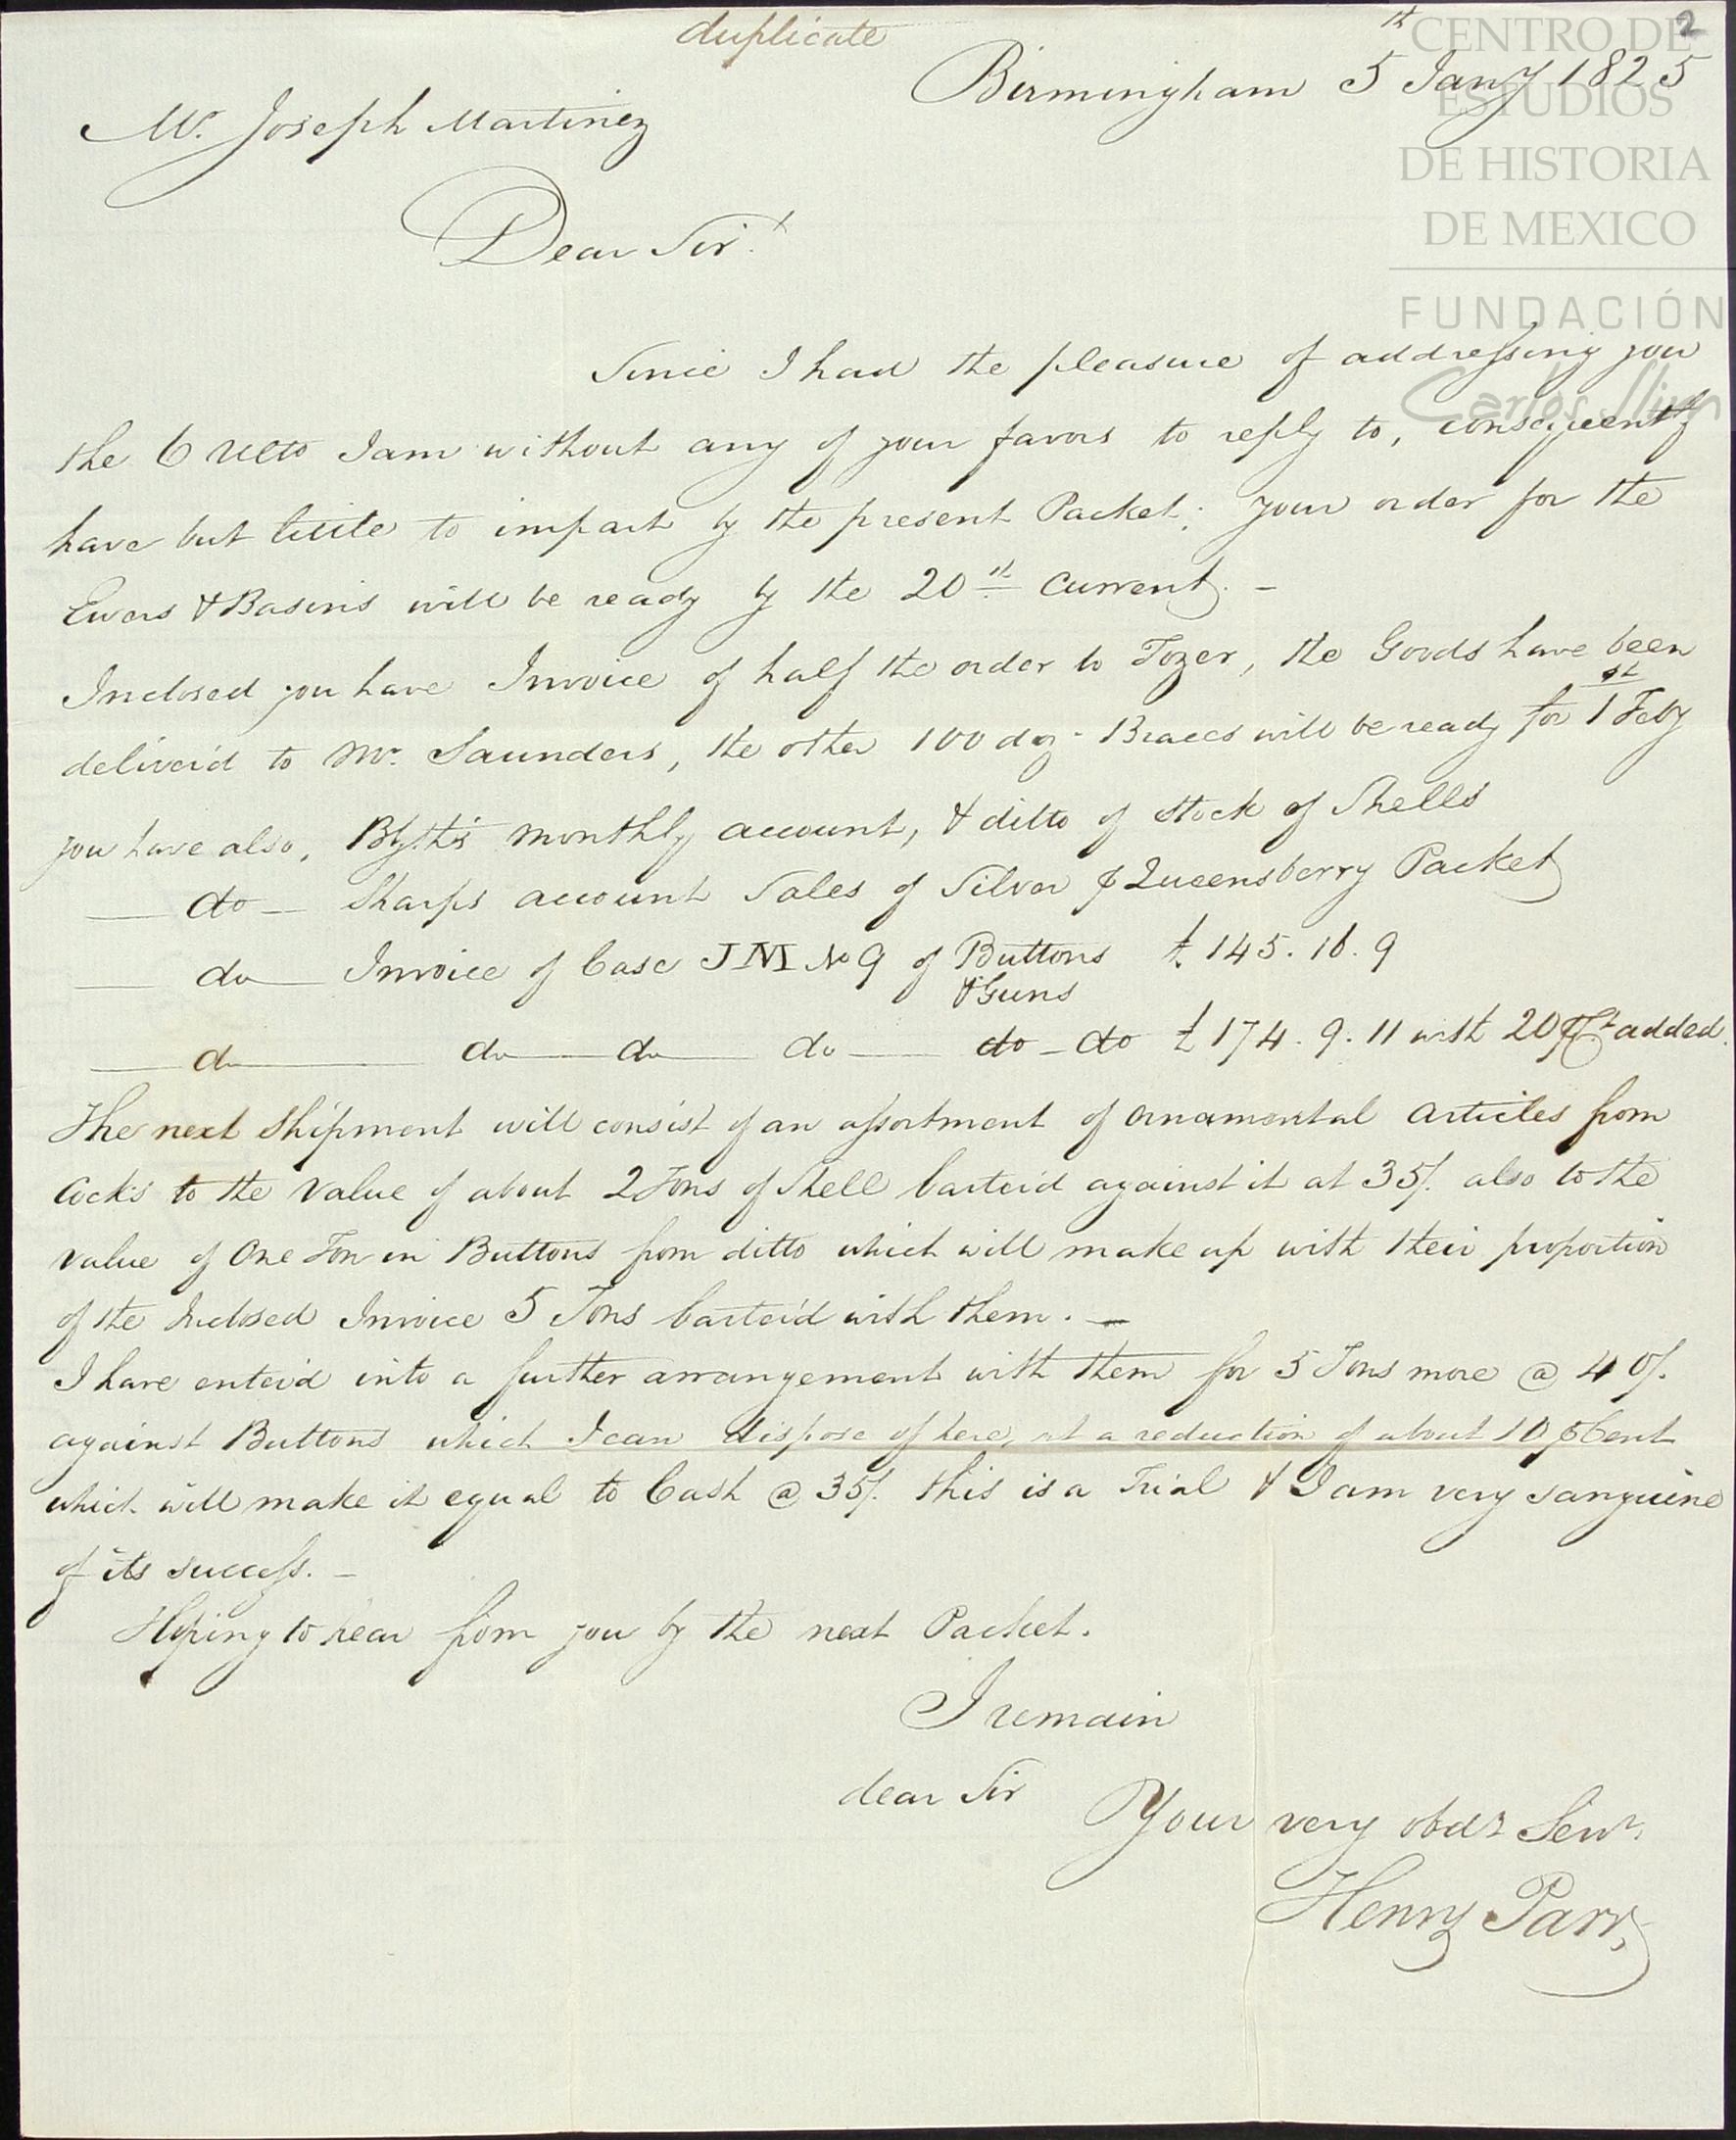 duplicate
2
Birmingham 5th Jany 1825
Mr. Joseph Martinez
Dear Sir.
Since I had the pleasure of addressing you
the 6 Ulto I am without any of your favors to reply to, consequently
have but little to impart by the present Packet; your order for the
Ewers & Basins will be ready by the 20th Current. -
Inclosed you have Invoice of half the order to Tozer, the Goods have been
deliver'd to Mr. Saunders, the other 100 doz - Braces will be ready for 1st Feby
you have also, Blyth's monthly account, & ditto of stock of Shells
do Sharps account Sales of Silver p Queensberry Packet
do Invoice of Case JM No 9 of Buttons £ 145. 16. 9
& Guns
do do do do do - do £ 174. 9. 11 with 20 p Ct added.
The next Shipment will consist of an assortment of ornamental articles from
Cocks to the value of about 2 Tons of Shell barter'd against it at 35/. also to the
value of One Ton in Buttons from ditto which will make up with their proportion
of the Inclosed Invoice 5 Tons barter'd with them. -
I have enter'd into a further arrangement with them for 5 Tons more @ 40/.
against Buttons which I can dispose of here, at a reduction of about 10 p Cent
which will make it equal to Cash @ 35/. this is a Trial & I am very sanguine
of its success. -
Hoping to hear from you by the next Packet.
I remain
dear Sir
Your very obdt Servt.
Henry Parr
CENTRO DE
ESTUDIOS
DE HISTORIA
DE MEXICO
FUNDACIÓN
Carlos Slim